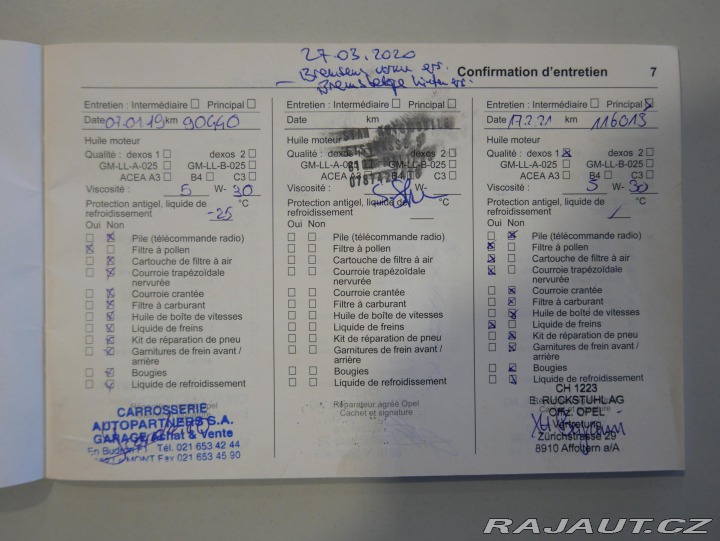 27.03.2020
Confirmation d'entretien 7
Entretien : Intermédiaire Principal
Date 07.01.19 km 90440
Huile moteur
Qualité : dexos 1 dexos 2
GM-LL-A-025 GM-LL-B-025
ACEA A3 B4 C3
Viscosité : 5 W- 30
Protection antigel, liquide de
refroidissement -25 °C
Oui Non
Pile (télécommande radio)
Filtre à pollen
Cartouche de filtre à air
Courroie trapézoïdale
nervurée
Courroie crantée
Filtre à carburant
Huile de boîte de vitesses
Liquide de freins
Kit de réparation de pneu
Garnitures de frein avant /
arrière
Bougies
Liquide de refroidissement
CARROSSERIE
AUTOPARTNERS S.A.
GARAGE Achat & Vente
Tél. 021 653 42 44
Fax 021 653 45 90
Entretien : Intermédiaire Principal
Date km
Huile moteur
Qualité : dexos 1 dexos 2
GM-LL-A-025 GM-LL-B-025
ACEA A3 B4 C3
Viscosité : W-
Protection antigel, liquide de
refroidissement °C
Oui Non
Pile (télécommande radio)
Filtre à pollen
Cartouche de filtre à air
Courroie trapézoïdale
nervurée
Courroie crantée
Filtre à carburant
Huile de boîte de vitesses
Liquide de freins
Kit de réparation de pneu
Garnitures de frein avant /
arrière
Bougies
Liquide de refroidissement
Réparateur agréé Opel
Cachet et signature
Entretien : Intermédiaire Principal
Date 17.2.21 km 116013
Huile moteur
Qualité : dexos 1 dexos 2
GM-LL-A-025 GM-LL-B-025
ACEA A3 B4 C3
Viscosité : 5 W- 30
Protection antigel, liquide de
refroidissement / °C
Oui Non
Pile (télécommande radio)
Filtre à pollen
Cartouche de filtre à air
Courroie trapézoïdale
nervurée
Courroie crantée
Filtre à carburant
Huile de boîte de vitesses
Liquide de freins
Kit de réparation de pneu
Garnitures de frein avant /
arrière
Bougies
Liquide de refroidissement
CH 1223
E. RUCKSTUHL AG
Offz. OPEL
Vertretung
Zürichstrasse 29
8910 Affoltern a/A
RAJAUT.CZ